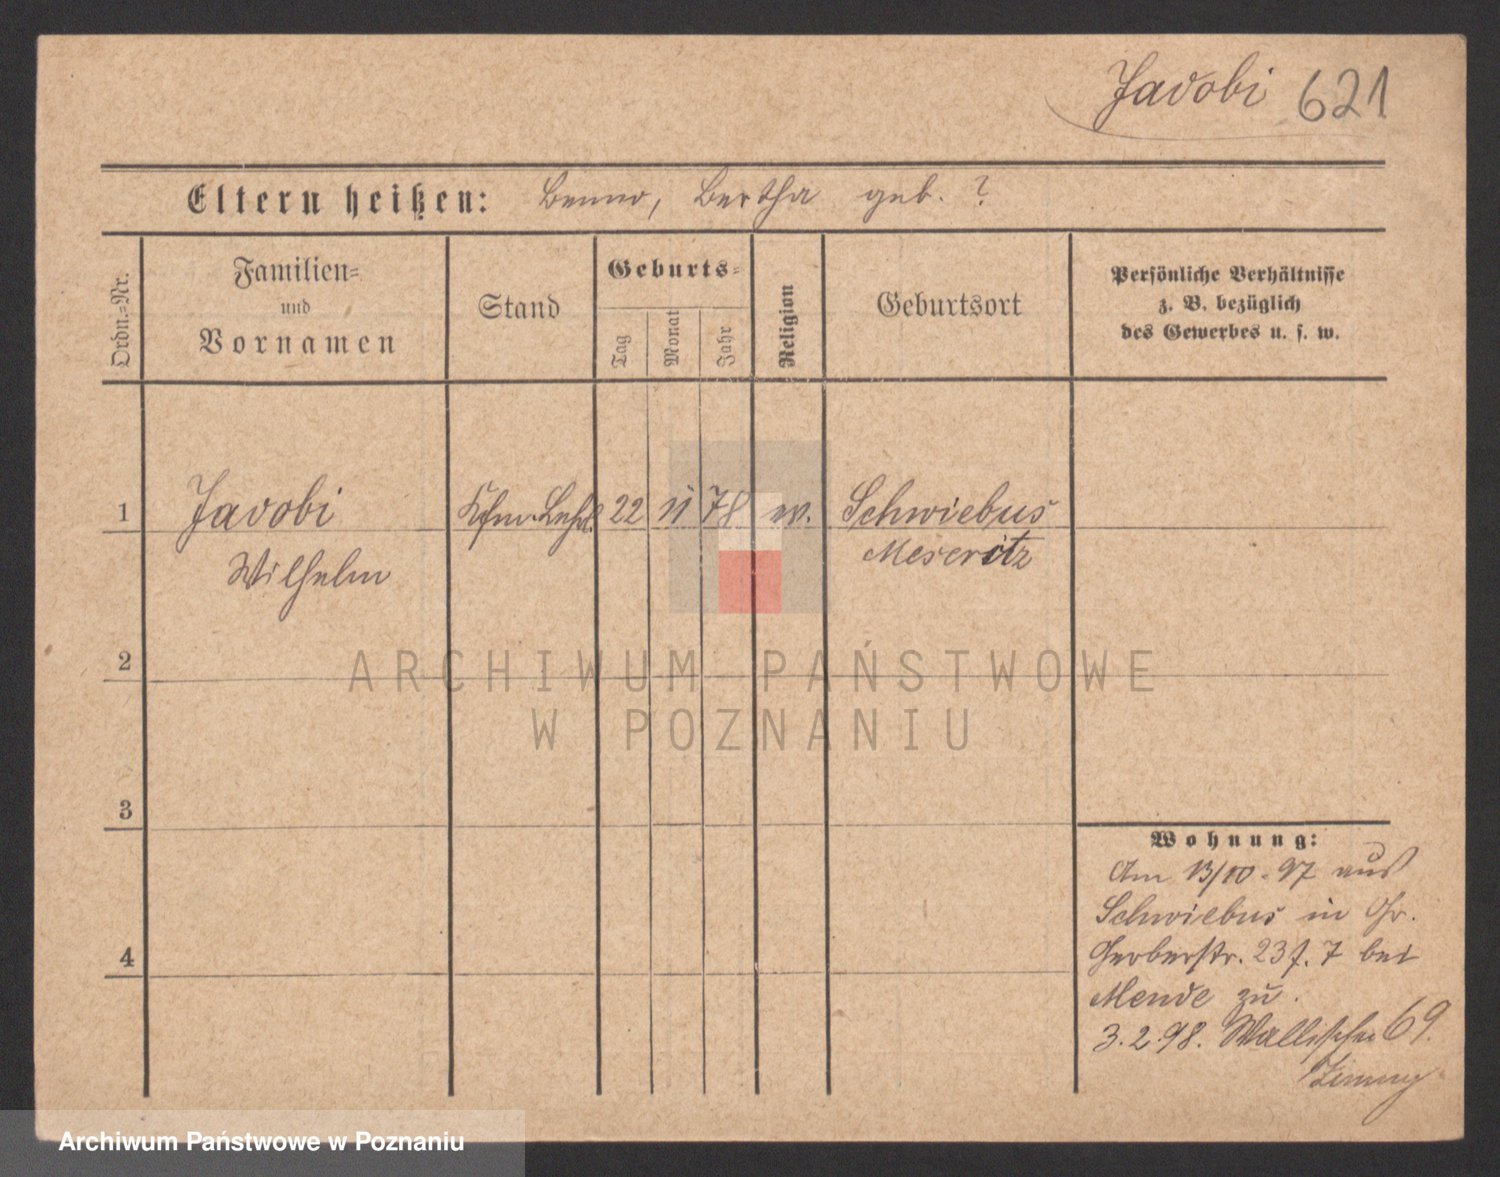 Jacobi 621
Eltern heißen: Benno, Bertha geb. ?
Ordn.=Nr.
Familien=
und
Vornamen
Stand
Geburts=
Tag
Monat
Jahr
Religion
Geburtsort
Persönliche Verhältnisse
z. B. bezüglich
des Gewerbes u. s. w.
1 Jacobi Kfm. Lehrl. 22 11 78 ev. Schwiebus
Wilhelm Meseritz
2
3
4
Wohnung:
Am 13/10. 97 aus
Schwiebus in Gr.
Gerberstr. 23 f. 7 bei
Mende zu.
3.2.98. Wallischei 69.
ARCHIWUM PAŃSTWOWE
W POZNANIU
Archiwum Państwowe w Poznaniu